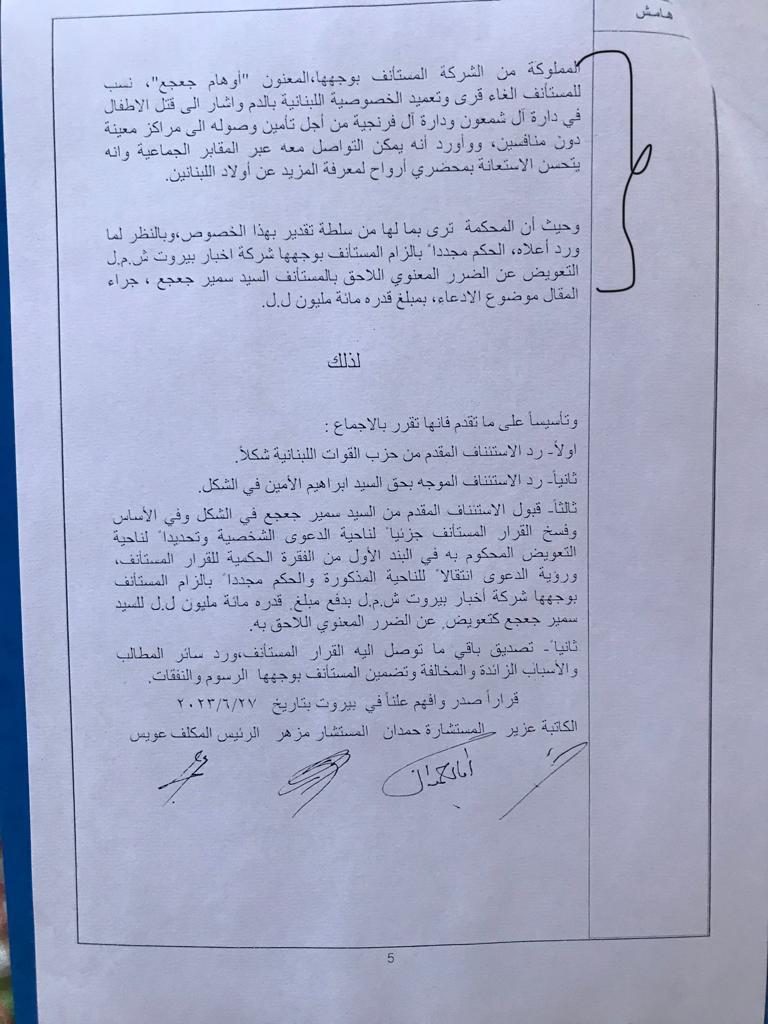 هامش
المملوكة من الشركة المستأنف بوجهها،المعنون "أوهام جعجع"، نسب
للمستأنف الغاء قرى وتعميد الخصوصية اللبنانية بالدم واشار الى قتل الاطفال
في دارة آل شمعون ودارة آل فرنجية من أجل تأمين وصوله الى مراكز معينة
دون منافسين، ووأورد أنه يمكن التواصل معه عبر المقابر الجماعية وانه
يتحسن الاستعانة بمحضري أرواح لمعرفة المزيد عن أولاد اللبنانين.
وحيث أن المحكمة ترى بما لها من سلطة تقدير بهذا الخصوص،وبالنظر لما
ورد أعلاه، الحكم مجدداً بالزام المستأنف بوجهها شركة اخبار بيروت ش.م.ل
التعويض عن الضرر المعنوي اللاحق بالمستأنف السيد سمير جعجع ، جراء
المقال موضوع الادعاء، بمبلغ قدره مائة مليون ل.ل.
لذلك
وتأسيساً على ما تقدم فانها تقرر بالاجماع :
اولاً- رد الاستئناف المقدم من حزب القوات اللبنانية شكلاً.
ثانياً- رد الاستئناف الموجه بحق السيد ابراهيم الأمين في الشكل.
ثالثاً- قبول الاستئناف المقدم من السيد سمير جعجع في الشكل وفي الأساس
وفسخ القرار المستأنف جزئياً لناحية الدعوى الشخصية وتحديداً لناحية
التعويض المحكوم به في البند الأول من الفقرة الحكمية للقرار المستأنف،
ورؤية الدعوى انتقالاً للناحية المذكورة والحكم مجدداً بالزام المستأنف
بوجهها شركة أخبار بيروت ش.م.ل بدفع مبلغ قدره مائة مليون ل.ل للسيد
سمير جعجع كتعويض عن الضرر المعنوي اللاحق به.
ثانياً- تصديق باقي ما توصل اليه القرار المستأنف،ورد سائر المطالب
والأسباب الزائدة والمخالفة وتضمين المستأنف بوجهها الرسوم والنفقات.
قراراً صدر وافهم علناً في بيروت بتاريخ ٢٠٢٣/٦/٢٧
الكاتبة عزير المستشارة حمدان المستشار مزهر الرئيس المكلف عويس
5